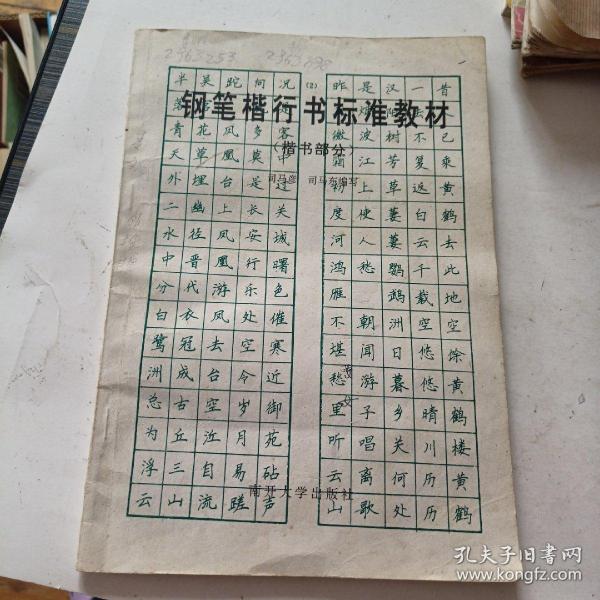 (2)
钢笔楷行书标准教材
(楷书部分)
司马彦 司马东编写
昔已乘黄鹤去此地空余黄鹤楼黄鹤
一不复返白云千载空悠悠晴川历历
汉树芳草萋萋鹦鹉洲日暮乡关何处
是波江上使人愁 朝闻游子唱离歌
昨微霜初度河鸿雁不堪愁里听云山
况客中过关城曙色催寒近御苑砧声
向多莫是长安行乐处空令岁月易蹉
跎凤凰台上凤凰游凤去台空江自流
吴花草埋幽径晋代衣冠成古丘三山
半青天外二水中分白鹭洲总为浮云
南开大学出版社
孔夫子旧书网
www.kongfz.com